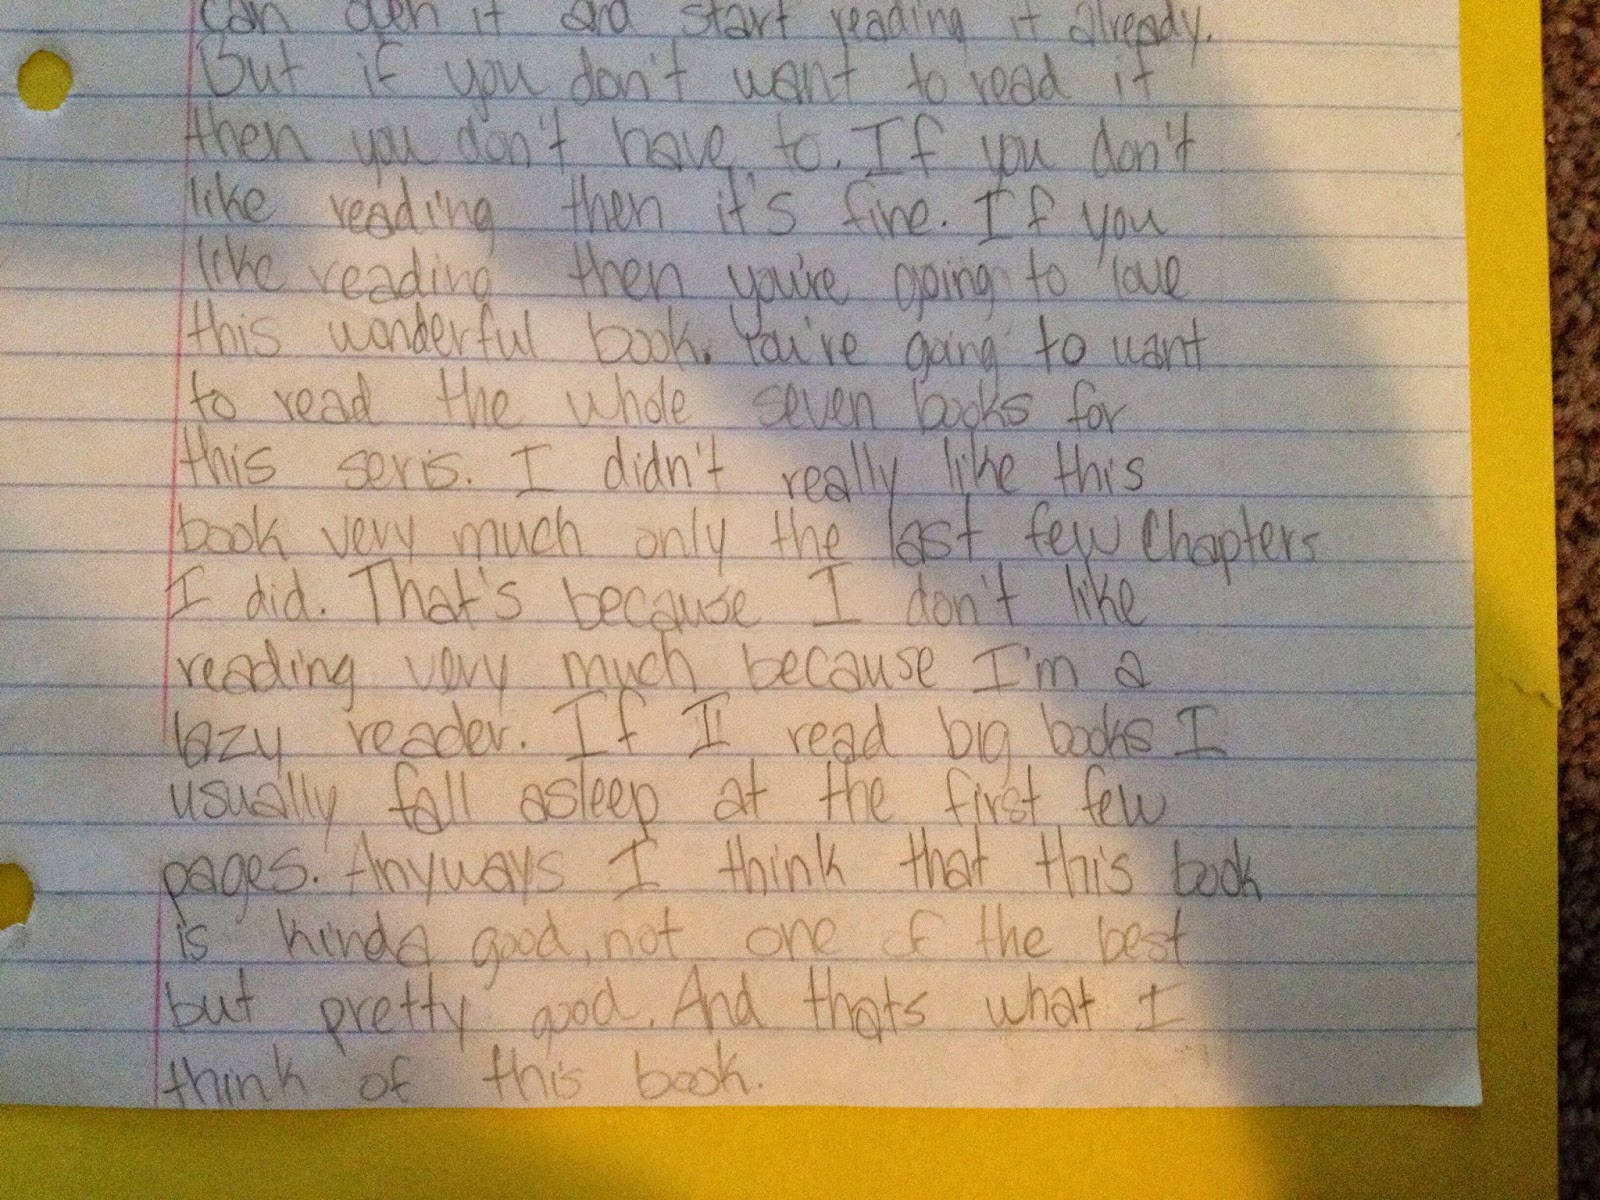 can open it and start reading it already.
But if you don't want to read it
then you don't have to. If you don't
like reading then it's fine. If you
like reading then you're going to love
this wonderful book. You're going to want
to read the whole seven books for
this seris. I didn't really like this
book very much only the last few Chapters
I did. That's because I don't like
reading very much because I'm a
lazy reader. If I read big books I
usually fall asleep at the first few
pages. Anyways I think that this book
is kinda good, not one of the best
but pretty good. And thats what I
think of this book.